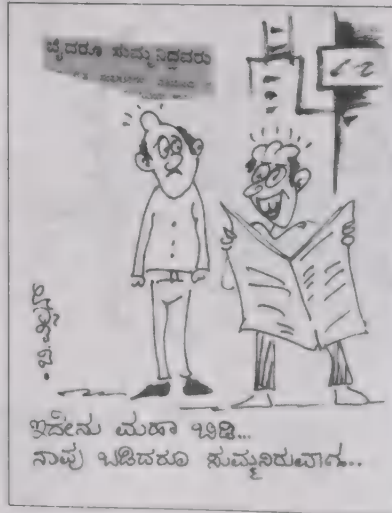 ಬೈದರೂ ಸುಮ್ಮನಿದ್ದವರು
ಇದೇನು ಮಹಾ ಬಿಡಿ...
ನಾವು ಬಡಿದರೂ ಸುಮ್ಮನಿರುವಾಗ...